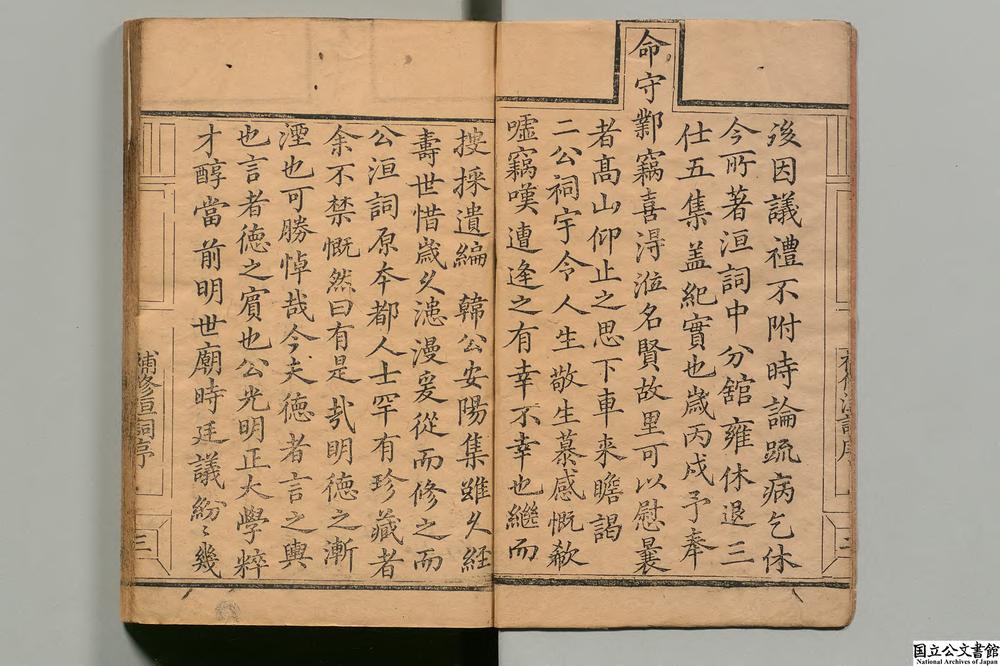 後因議禮不附時論疏病乞休
今所著洹詞中分舘雍休退三
仕五集盖紀實也歲丙戌予奉
命守鄴竊喜淂涖名賢故里可以慰曩
者髙山仰止之思下車来瞻謁
二公祠宇令人生敬生慕感慨欷
嘘竊嘆遭逢之有幸不幸也繼而
搜採遺編韓公安陽集雖久経
壽世惜歲久漶漫爰從而修之而
公洹詞原夲都人士罕有珍藏者
余不禁慨然曰有是㢤明徳之漸
湮也可勝悼哉今夫徳者言之輿
也言者徳之賓也公光明正大學粹
才醇當前明世廟時廷議紛〻幾
補修洹詞序
三
補修洹詞序
二
国立公文書館
National Archives of Japan